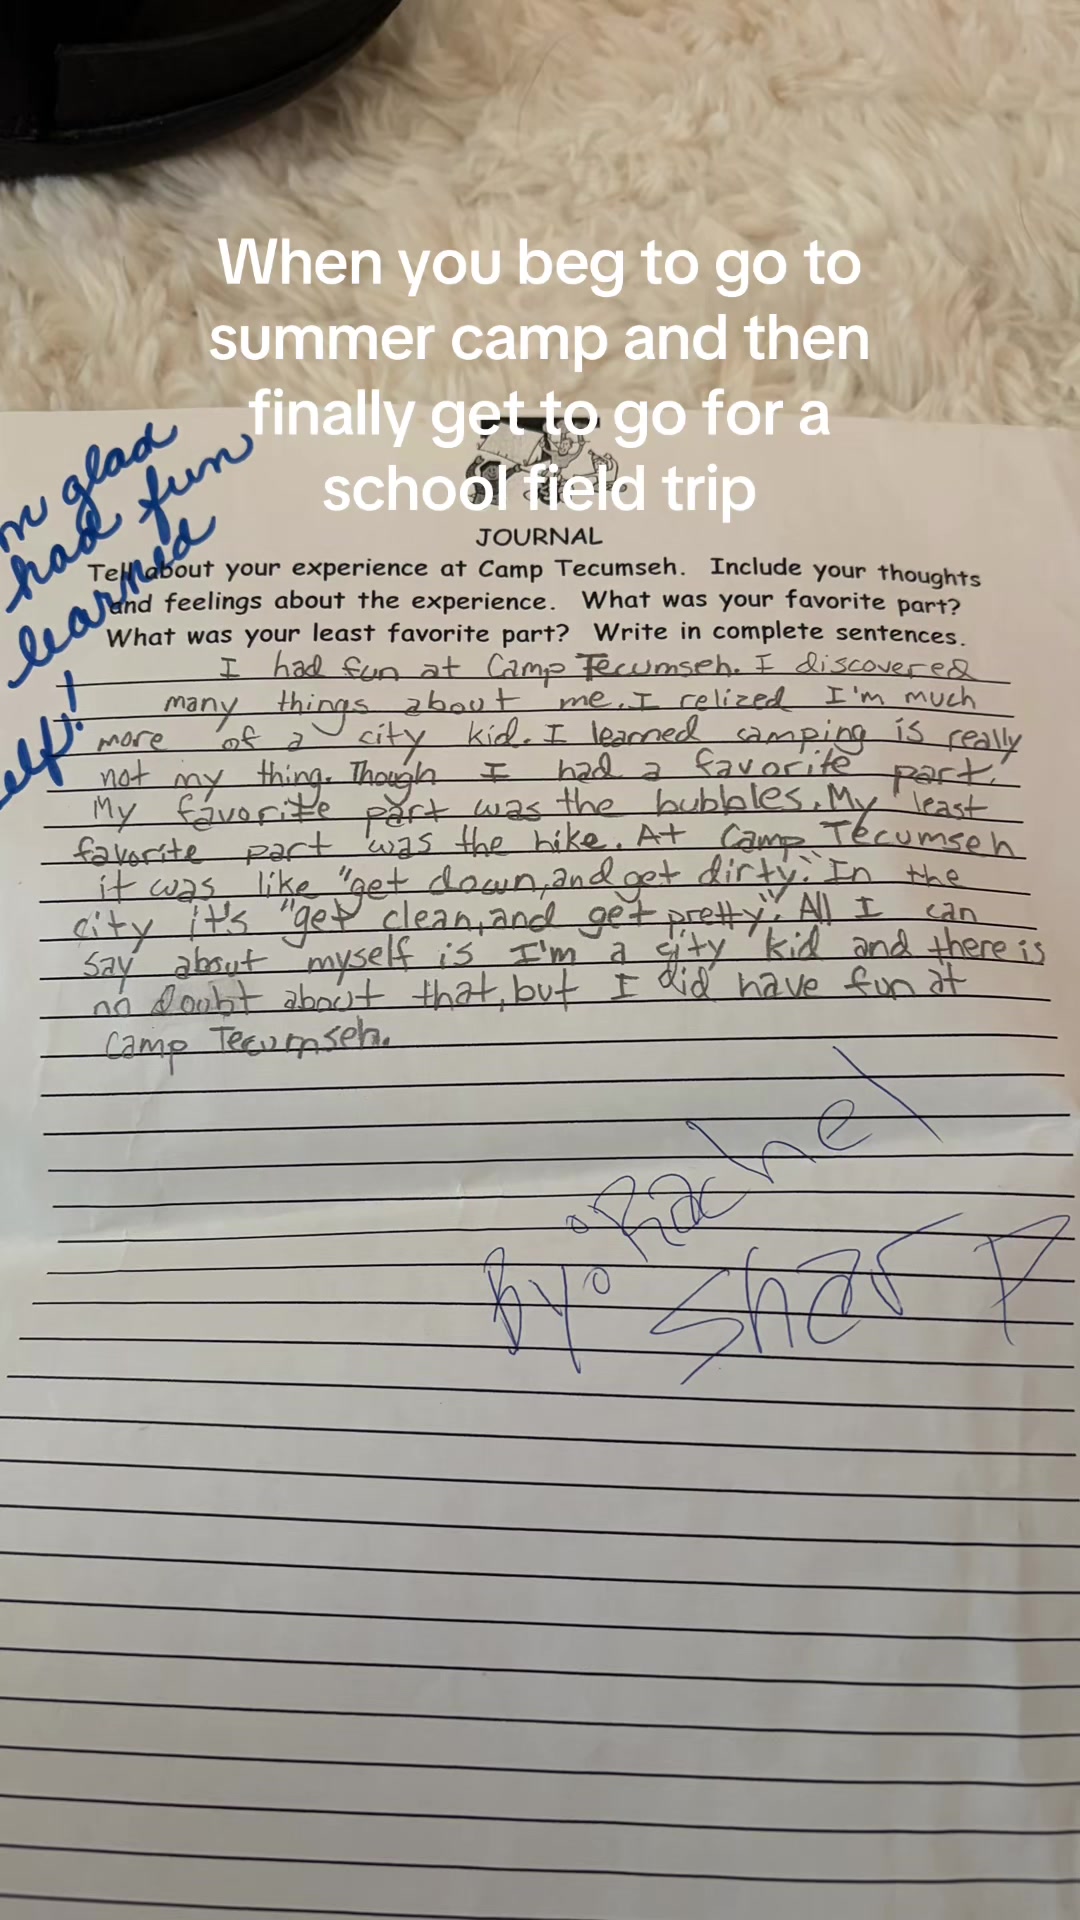 When you beg to go to
summer camp and then
finally get to go for a
school field trip
glad
had fun
learned
JOURNAL
Tell about your experience at Camp Tecumseh. Include your thoughts
and feelings about the experience. What was your favorite part?
What was your least favorite part? Write in complete sentences.
I had fun at Camp Tecumseh. I discovered
many things about me. I relized I'm much
more of a city kid. I learned camping is really
not my thing. Though I had a favorite part.
My favorite part was the bubbles. My least
favorite part was the hike. At Camp Tecumseh
it was like "get down, and get dirty." In the
city it's "get clean, and get pretty". All I can
say about myself is I'm a city kid and there is
no doubt about that, but I did have fun at
Camp Tecumseh.
By: Rachel
Sharp